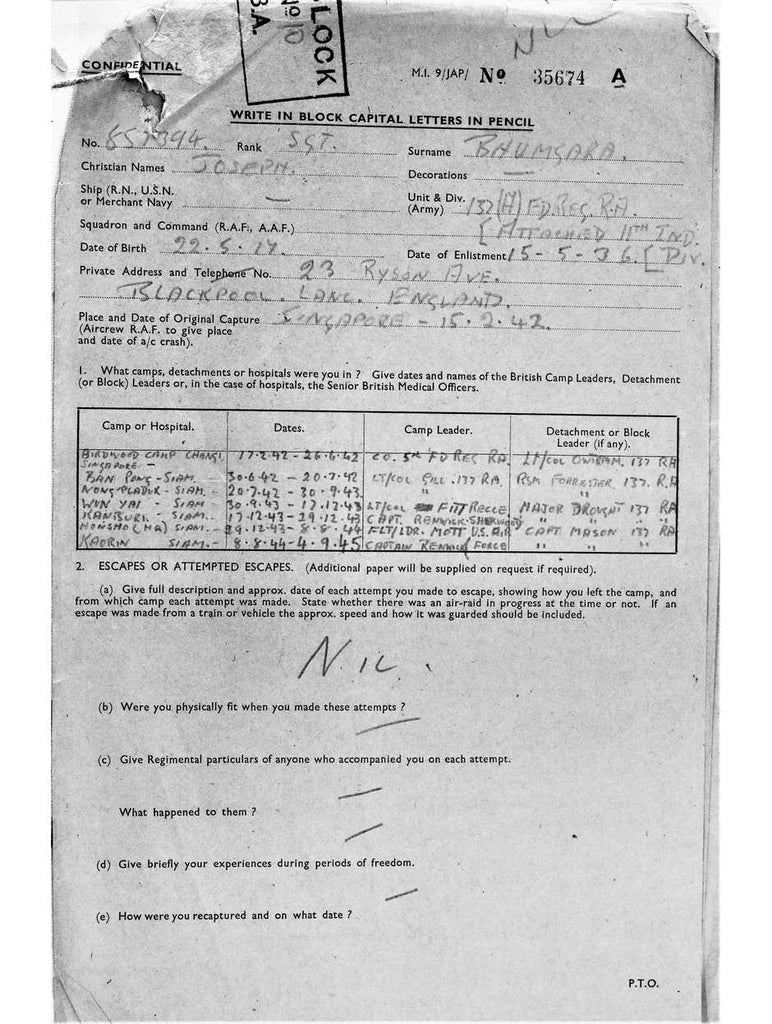 BLOCK
No 10
B.A.
NIL
CONFIDENTIAL
M.I. 9/JAP/ No 35674 A
WRITE IN BLOCK CAPITAL LETTERS IN PENCIL
No. Rank SGT. Surname BHUMGARA.
Christian Names JOSEPH. Decorations —
Ship (R.N., U.S.N. or Merchant Navy — Unit & Div. (Army) 137 (H) FD. REG. R.A.
[ATTACHED 11TH IND. DIV.
Squadron and Command (R.A.F., A.A.F.)
Date of Birth 22.5.17. Date of Enlistment 15-5-36.
Private Address and Telephone No. 23 RYSON AVE.
BLACKPOOL. LANC. ENGLAND.
Place and Date of Original Capture SINGAPORE - 15.2.42.
(Aircrew R.A.F. to give place
and date of a/c crash).
1. What camps, detachments or hospitals were you in ? Give dates and names of the British Camp Leaders, Detachment
(or Block) Leaders or, in the case of hospitals, the Senior British Medical Officers.
Camp or Hospital. Dates. Camp Leader. Detachment or Block Leader (if any).
BIRDWOOD CAMP CHANGI SINGAPORE. - 17.2.42 - 26.6.42 CO. 5TH FD REG RA. LT/COL OWTRAM. 137 RA
BAN PONG - SIAM. 30.6.42 - 20.7.42 LT/COL GILL. 137 RA. RSM FORRESTER. 137. R.A
NONG PLADUK - SIAM. 20.7.42 - 30.9.43. " "
WUN YAI - SIAM 30.9.43 - 17.12.43 LT/COL FITT RECCE MAJOR DROUGHT 137 RA
KANBURI. - SIAM. 17.12.43 - 29.12.43 CAPT. RENWICK-SHERWOOD " " "
NONSHO (HA) SIAM. - 29.12.43 - 8.8.44 FLT/LDR. MOTT U.S. AIR FORCE CAPT MASON 137 RA
KAORIN SIAM. - 8.8.44 - 4.9.45 CAPTAIN RENWICK " " "
2. ESCAPES OR ATTEMPTED ESCAPES. (Additional paper will be supplied on request if required).
(a) Give full description and approx. date of each attempt you made to escape, showing how you left the camp, and
from which camp each attempt was made. State whether there was an air-raid in progress at the time or not. If an
escape was made from a train or vehicle the approx. speed and how it was guarded should be included.
NIL.
(b) Were you physically fit when you made these attempts ?
—
(c) Give Regimental particulars of anyone who accompanied you on each attempt.
—
What happened to them ?
—
(d) Give briefly your experiences during periods of freedom.
—
(e) How were you recaptured and on what date ?
P.T.O.